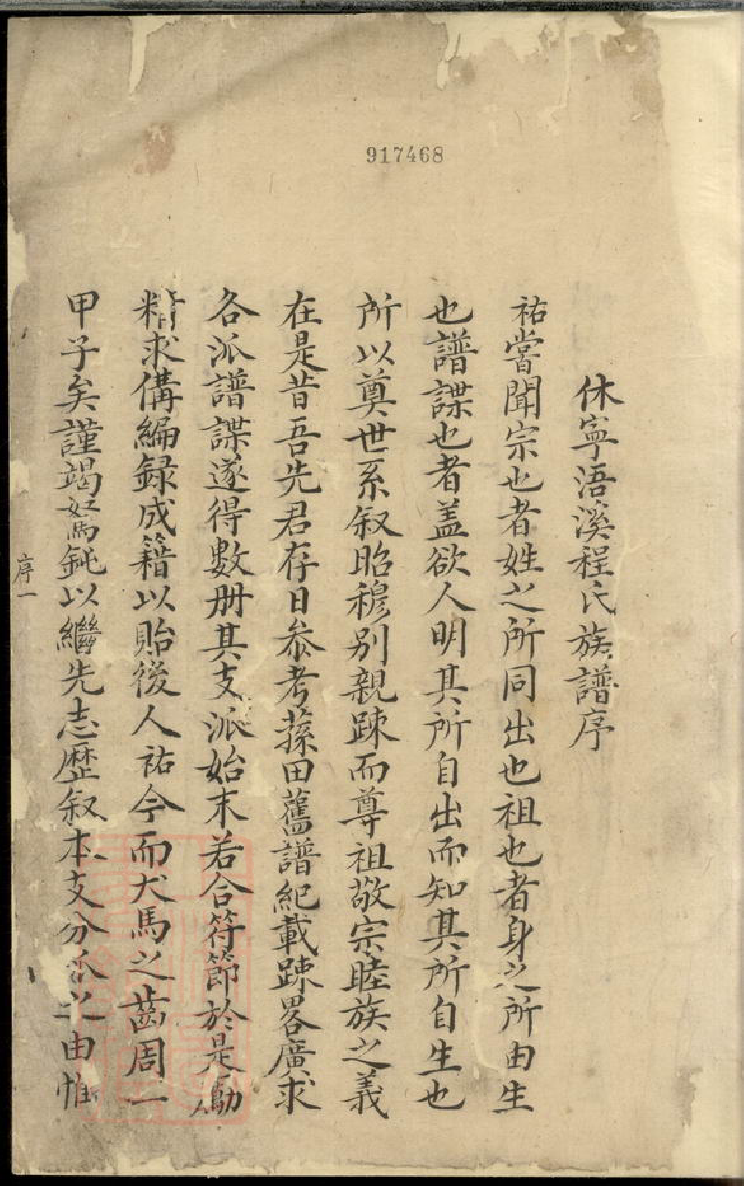 917468
休寧浯溪程氏族譜序
祐嘗聞宗也者姓之所同出也祖也者身之所由生
也譜諜也者盖欲人明其所自出而知其所自生也
所以奠世系叙昭穆別親踈而尊祖敬宗睦族之義
在是昔吾先君存日叅考蓀田舊譜紀載踈畧廣求
各派譜諜遂得數册其支派始末若合符節於是勵
精求備編録成籍以貽後人祐今而犬馬之齒周一
甲子矣謹竭駑鈍以繼先志歷叙本支分派之由惟
序一